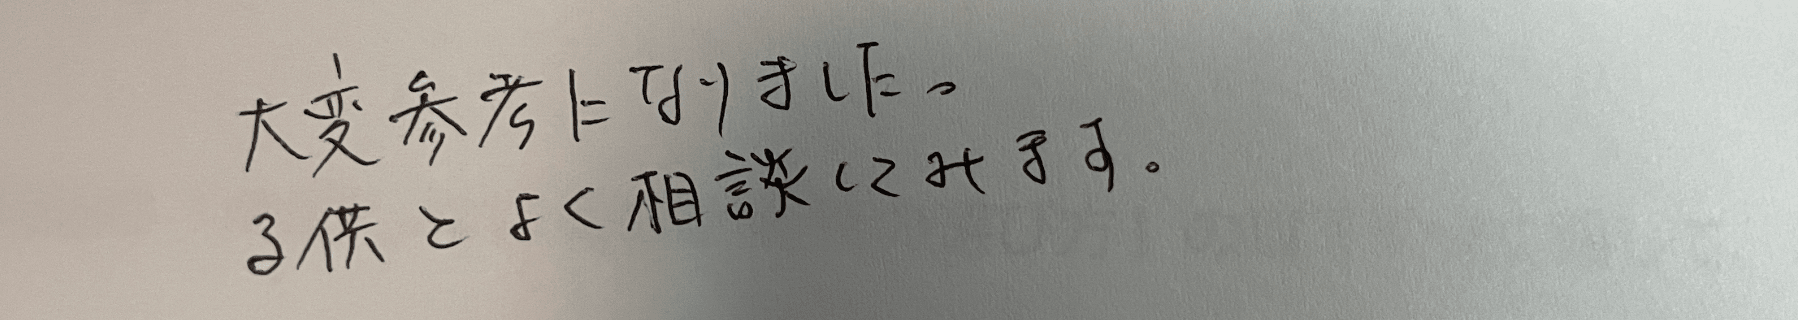 大変参考になりました。
子供とよく相談してみます。